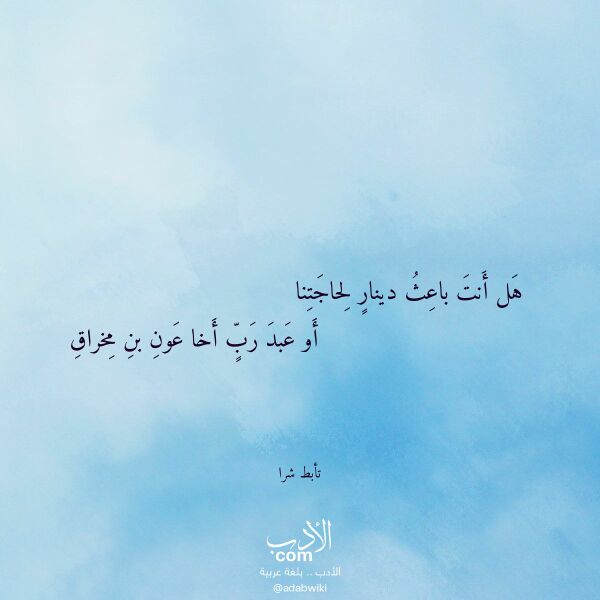 هَل أَنتَ باعِثُ دينارٍ لِحاجَتِنا
أَو عَبدَ رَبٍّ أَخا عَونِ بنِ مِخراقِ
تأبط شرا
الأدب
com
الأدب .. بلغة عربية
@adabwiki